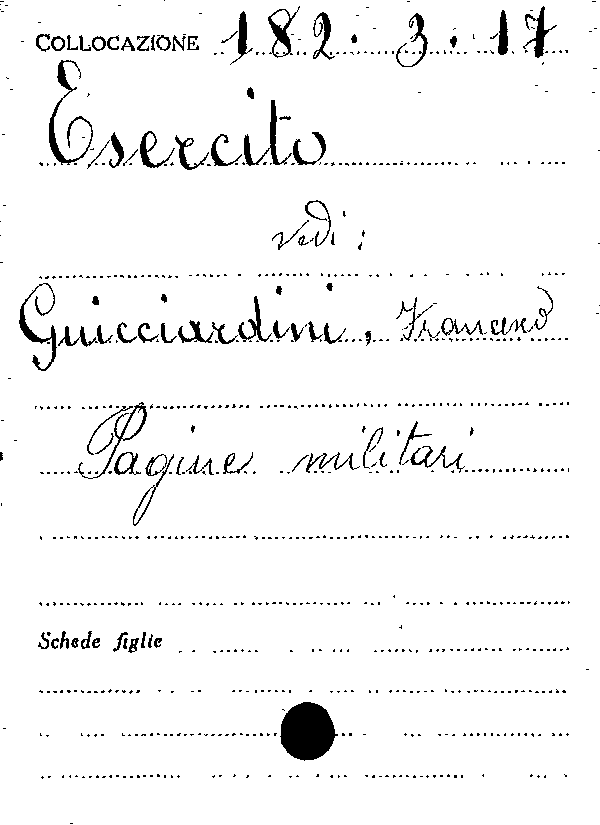 COLLOCAZIONE 182.3.17
Esercito
vedi:
Guicciardini, Francesco
Pagine militari
Schede figlie